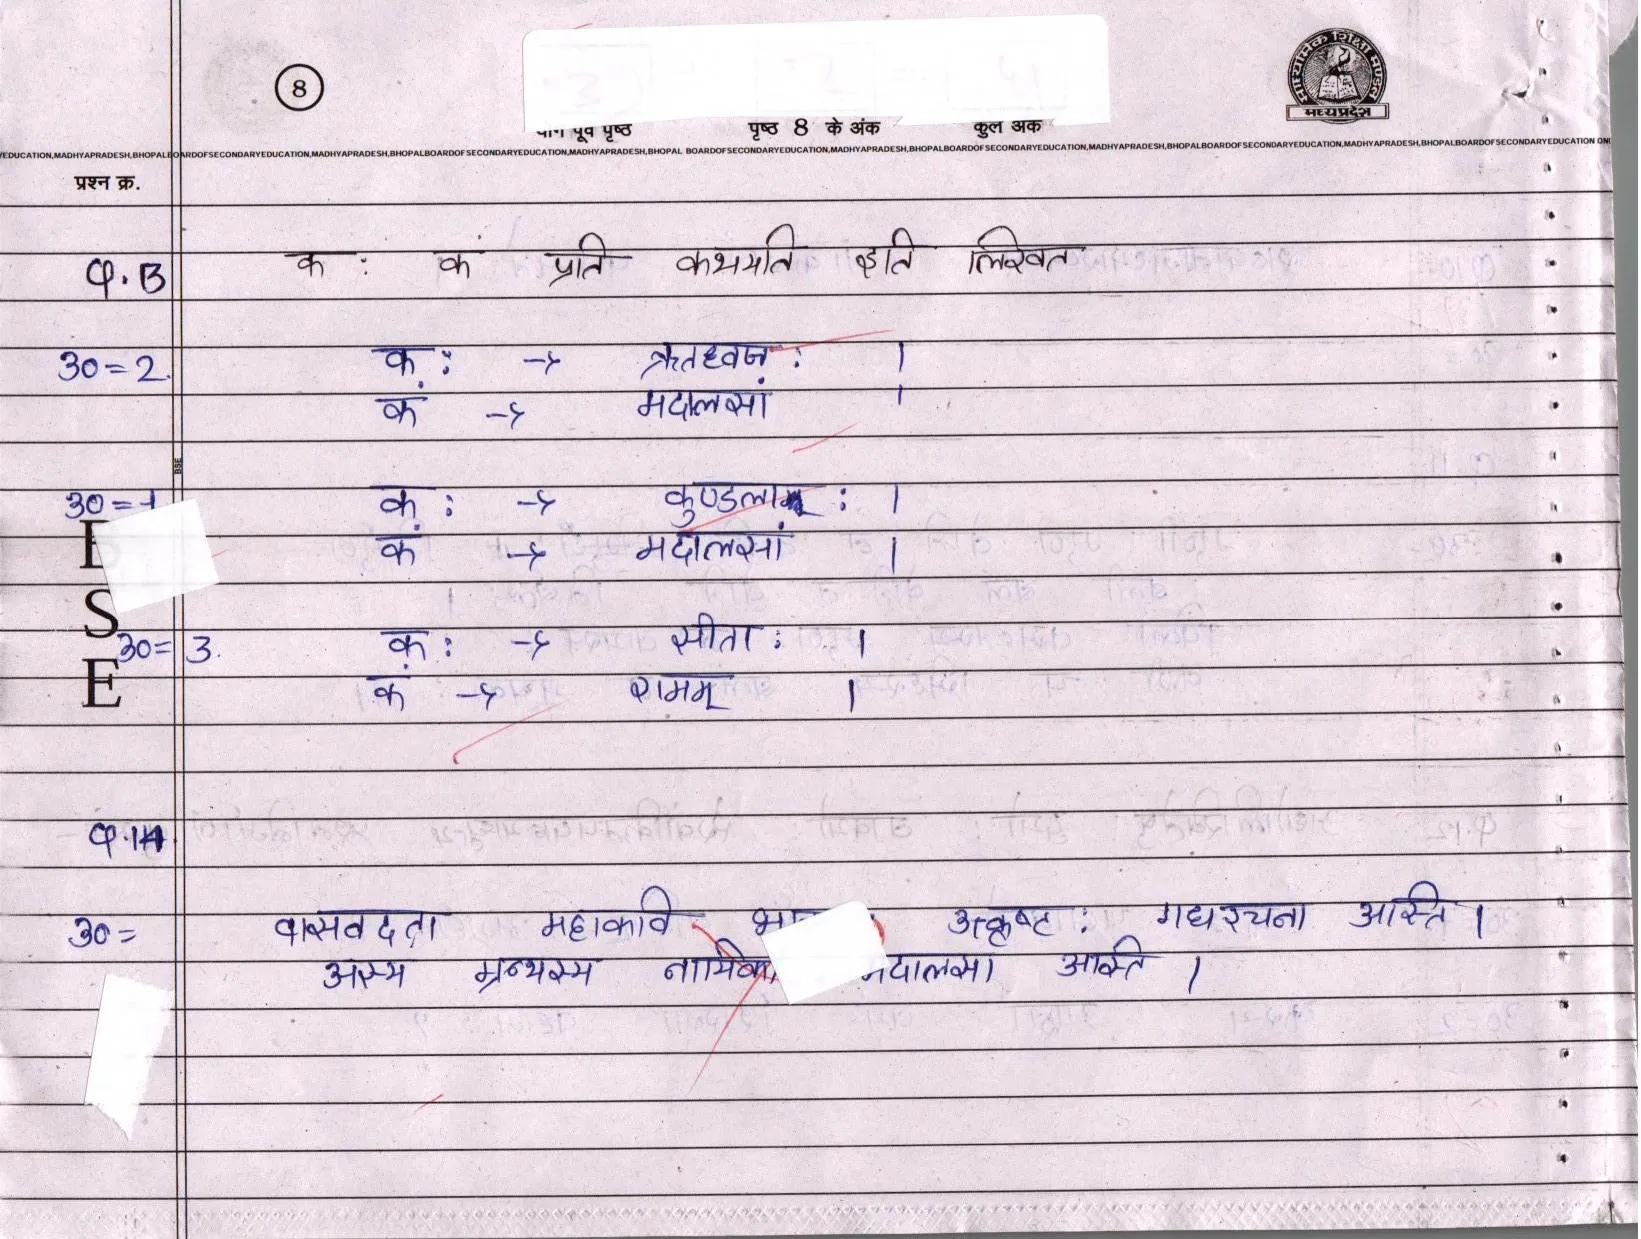 8
माध्यमिक शिक्षा मण्डल
मध्यप्रदेश
योग पूर्व पृष्ठ पृष्ठ 8 के अंक कुल अंक
YEDUCATION,MADHYAPRADESH,BHOPALBOARDOFSECONDARYEDUCATION,MADHYAPRADESH,BHOPALBOARDOFSECONDARYEDUCATION,MADHYAPRADESH,BHOPAL BOARDOFSECONDARYEDUCATION,MADHYAPRADESH,BHOPALBOARDOFSECONDARYEDUCATION,MADHYAPRADESH,BHOPALBOARDOFSECONDARYEDUCATION,MADHYAPRADESH,BHOPALBOARDOFSECONDARYEDUCATION
प्रश्न क्र.
Q.13 कः कं प्रति कथयति इति लिखत
उ0=2. कः → ऋतध्वजः ।
कं → मदालसां ।
BSE
उ0=1 कः → कुण्डला: ।
कं → मदालसां ।
S
उ0=3. कः → सीताः ।
E
कं → रामम् ।
Q.14.
उ0= वासवदता महाकवि उत्कृष्टः गधरचना अस्ति ।
अस्य ग्रन्थस्य मदालसा अस्ति ।